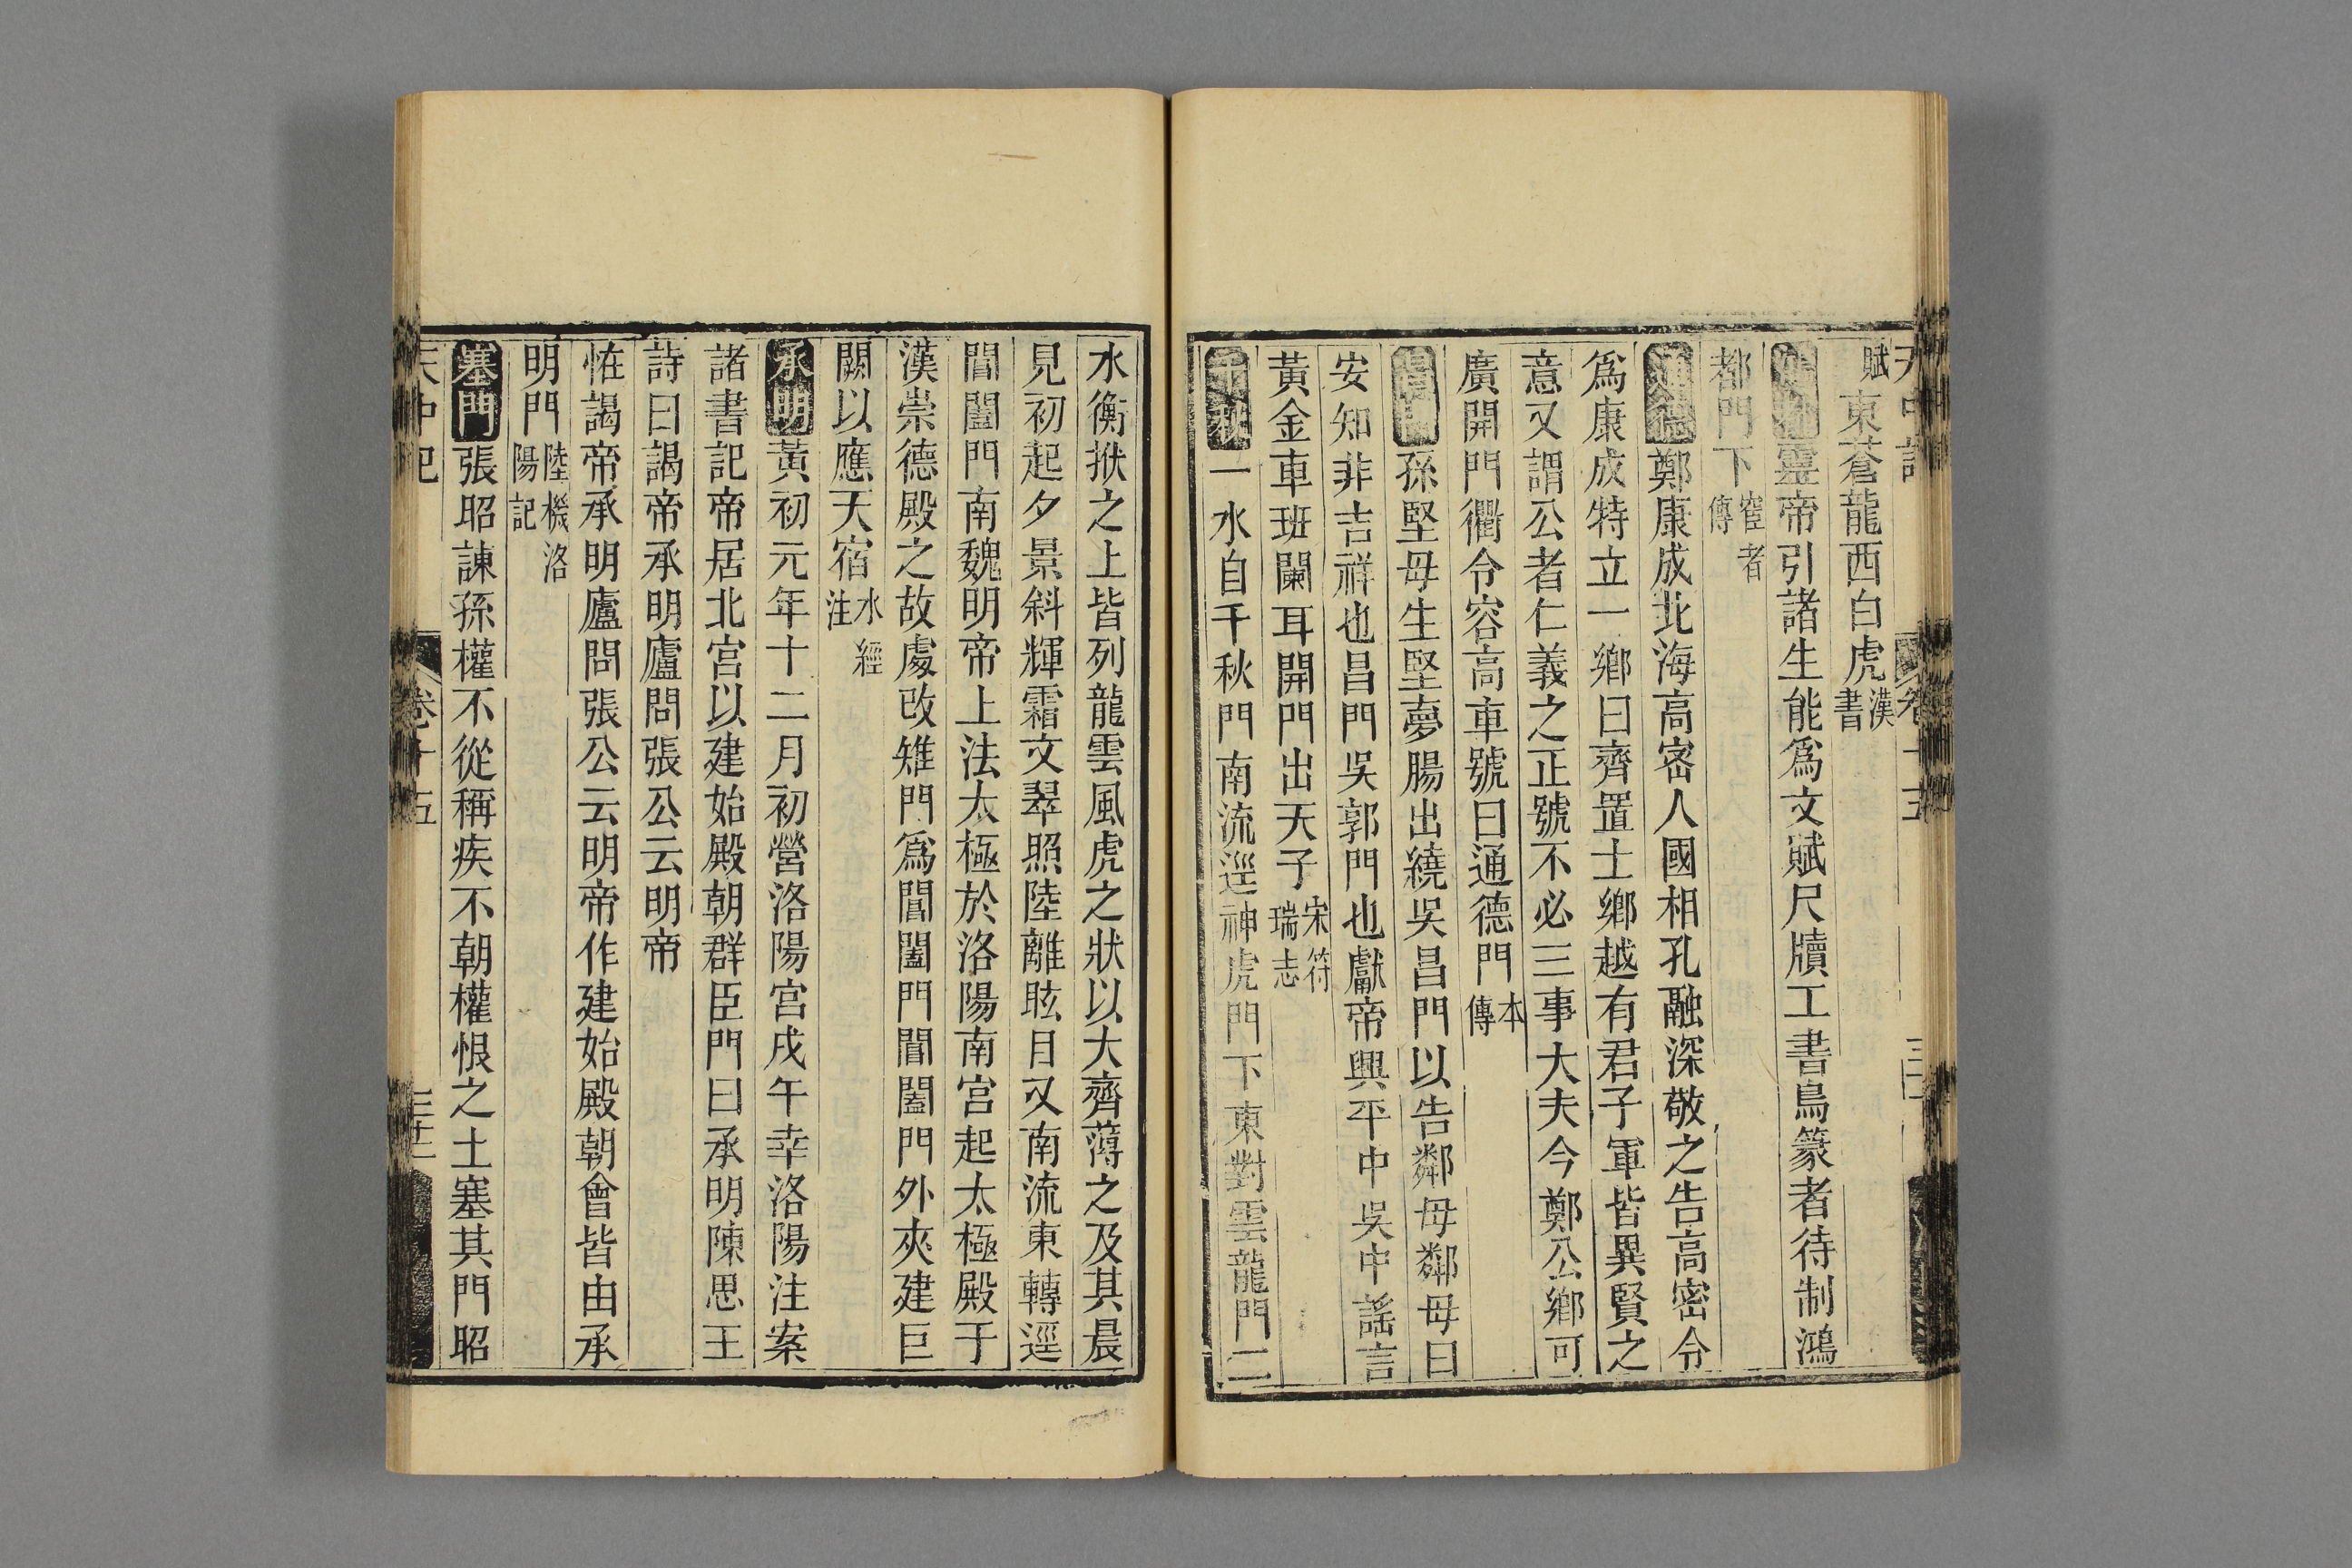 天中記
卷十五
賦東蒼龍西白虎漢書
鴻都靈帝引諸生能爲文賦尺牘工書鳥篆者待制鴻
都門下宦者傳
通德鄭康成北海高密人國相孔融深敬之告高密令
爲康成特立一鄉曰齊置士鄉越有君子軍皆異賢之
意又謂公者仁義之正號不必三事大夫今鄭公鄉可
廣開門衢令容高車號曰通德門本傳
昌門孫堅母生堅夢腸出繞吳昌門以告鄰母鄰母曰
安知非吉祥也昌門吳郭門也獻帝興平中吳中謠言
黃金車班闌耳開門出天子宋符瑞志
千秋一水自千秋門南流逕神虎門下東對雲龍門二
水衡栿之上皆列龍雲風虎之狀以大齊薄之及其晨
見初起夕景斜輝霜文翠照陸離眩目又南流東轉逕
閶闔門南魏明帝上法太極於洛陽南宮起太極殿于
漢崇德殿之故處改雉門爲閶闔門閶闔門外夾建巨
闕以應天宿水經注
承明黃初元年十二月初營洛陽宮戌午幸洛陽注案
諸書記帝居北宮以建始殿朝群臣門曰承明陳思王
詩曰謁帝承明廬問張公云明帝
恠謁帝承明廬問張公云明帝作建始殿朝會皆由承
明門陸機洛陽記
塞門張昭諫孫權不從稱疾不朝權恨之土塞其門昭
天中記
卷十五